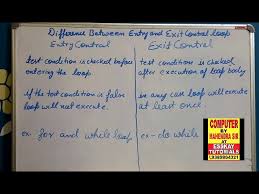 Difference Between Entry and Exit Control loop
Entry Control
Exit Control
test condition is checked before
entering the loop
test condition is checked
after execution of loop body
if the test condition is false
loop will not execute.
in any case loop will execute
at least once.
ex- for and while loop
ex- do while
COMPUTER
BY
MAHENDRA SIR
BY
ESSKAY
TUTORIALS